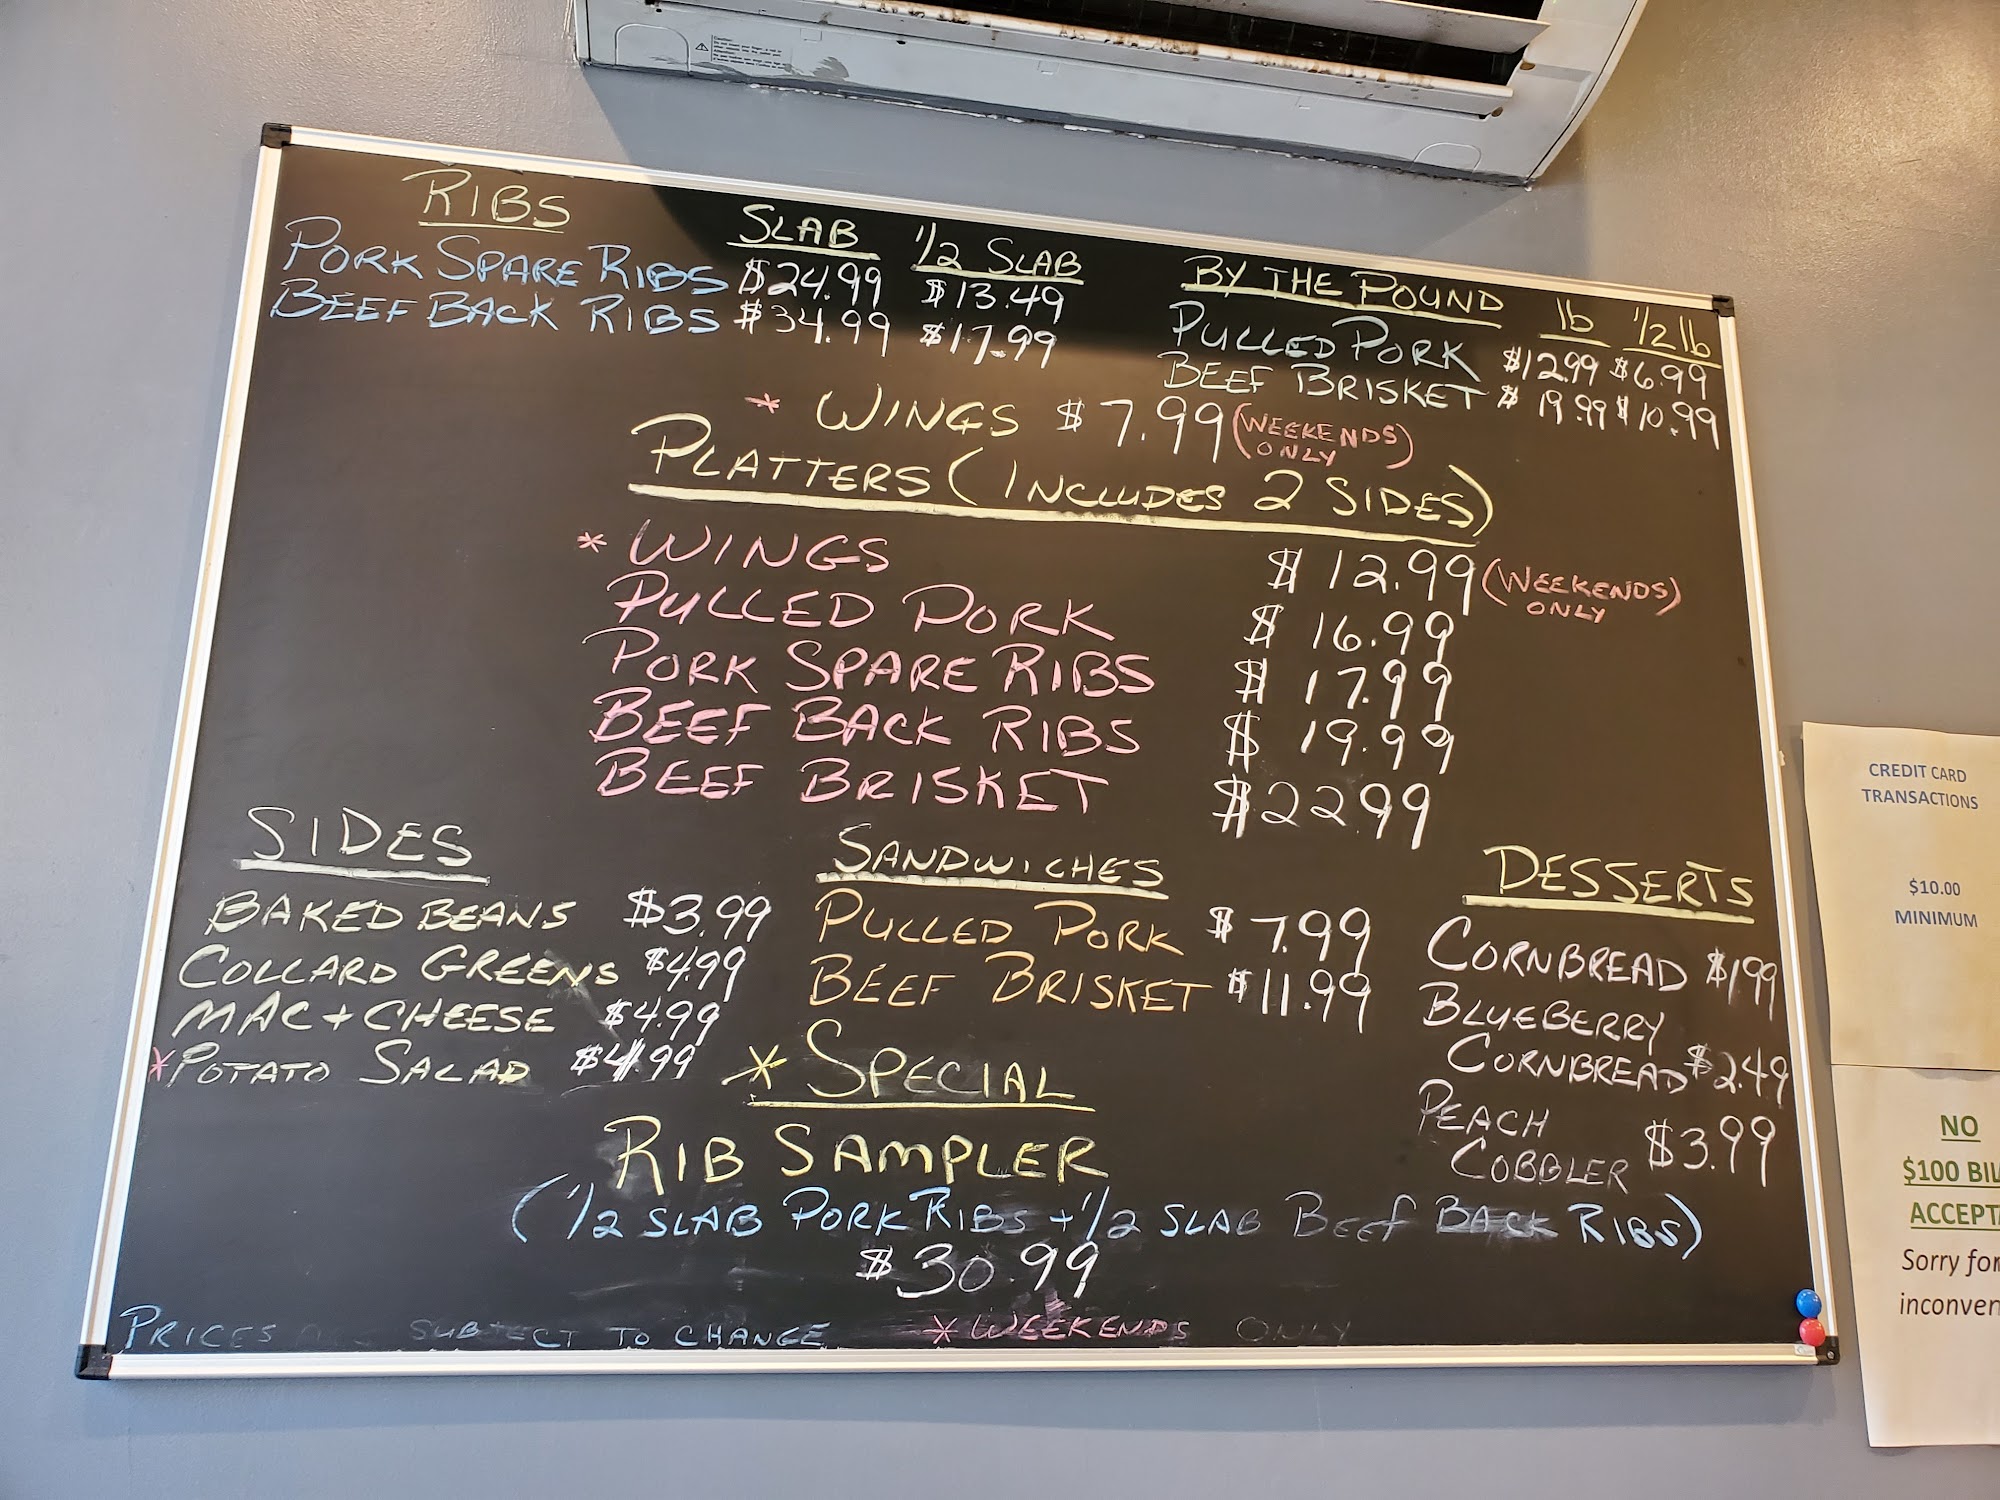 RIBS
SLAB 1/2 SLAB
PORK SPARE RIBS $24.99 $13.49
BEEF BACK RIBS $34.99 $17.99
BY THE POUND lb 1/2 lb
PULLED PORK $12.99 $6.99
BEEF BRISKET $19.99 $10.99
* WINGS $7.99 (WEEKENDS ONLY)
PLATTERS (INCLUDES 2 SIDES)
* WINGS $12.99 (WEEKENDS ONLY)
PULLED PORK $16.99
PORK SPARE RIBS $17.99
BEEF BACK RIBS $19.99
BEEF BRISKET $22.99
SIDES
BAKED BEANS $3.99
COLLARD GREENS $4.99
MAC + CHEESE $4.99
* POTATO SALAD $4.99
SANDWICHES
PULLED PORK $7.99
BEEF BRISKET $11.99
DESSERTS
CORNBREAD $1.99
BLUEBERRY
CORNBREAD $2.49
PEACH
COBBLER $3.99
* SPECIAL
RIB SAMPLER
(1/2 SLAB PORK RIBS + 1/2 SLAB BEEF BACK RIBS)
$30.99
PRICES SUBJECT TO CHANGE * WEEKENDS ONLY
CREDIT CARD
TRANSACTIONS
$10.00
MINIMUM
NO
$100 BIL
ACCEPT
Sorry for
inconven